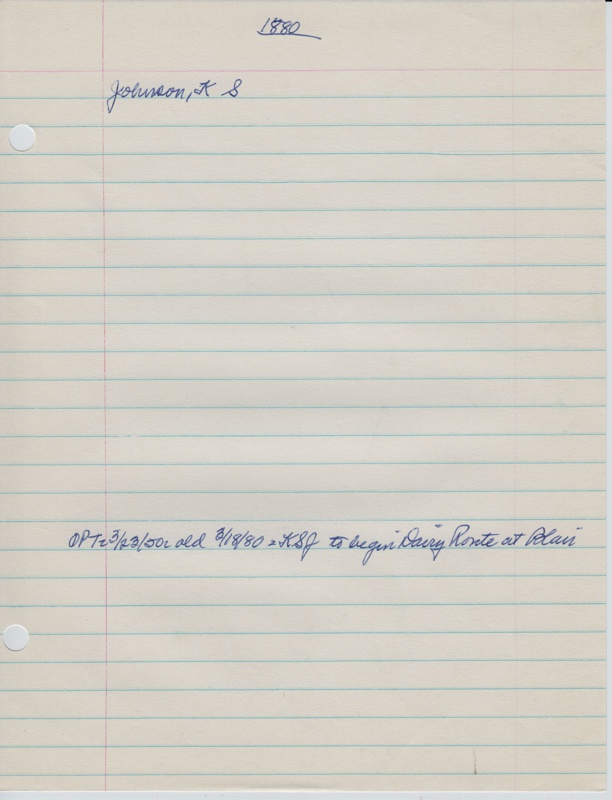 1880
Johnson, K S
OPT = 3/23/50: old 3/18/80 = KSJ to begin Dairy Route at Blair